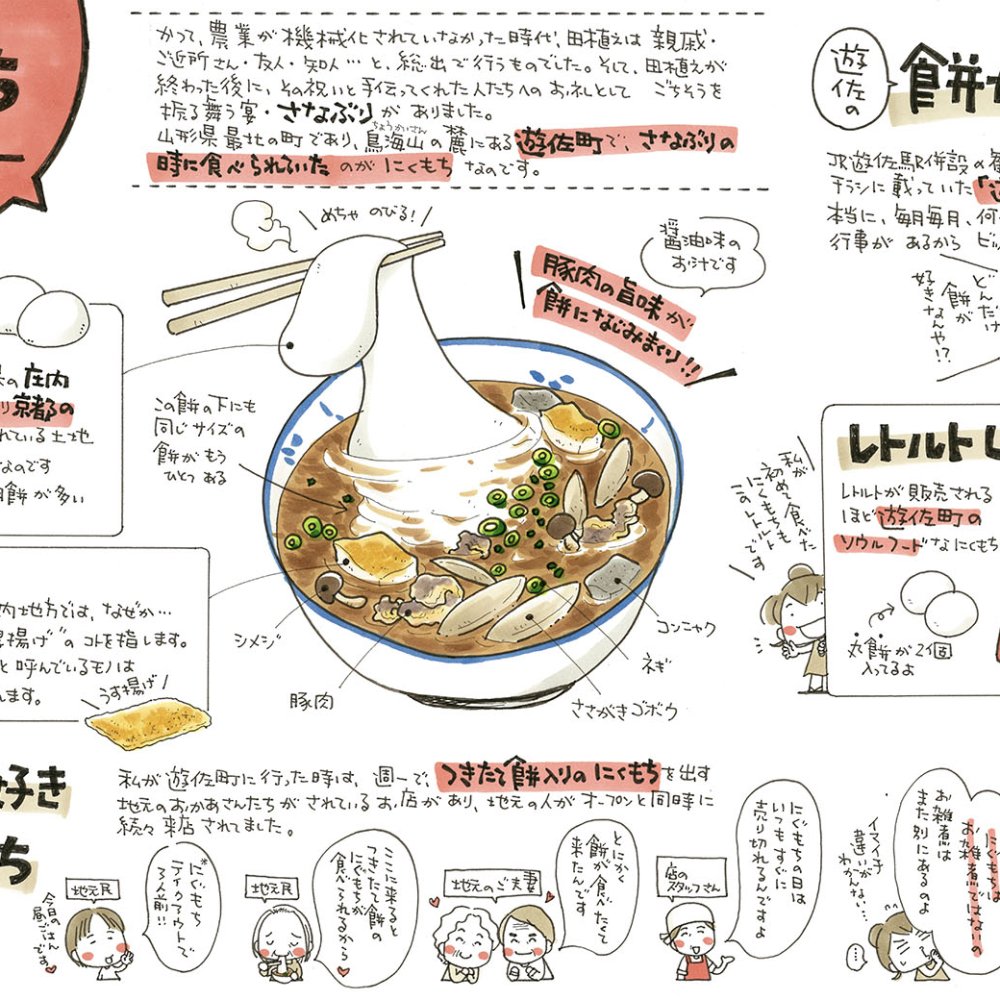 かつて、農業が機械化されていなかった時代、田植えは親戚・
ご近所さん・友人・知人…と、総出で行うものでした。そして、田植えが
終わった後に、その祝いと手伝ってくれた人たちへのお礼として ごちそうを
振る舞う宴・さなぶりがありました。
ちょうかいさん
山形県最北の町であり、鳥海山の麓にある遊佐町で、さなぶりの
時に食べられていたのがにくもちなのです。
遊佐の
餅
JR遊佐駅併設の
チラシに載っていた「
本当に、毎月毎月、何
行事があるからビッ
どんだけ
餅が
好きなんや!?
めちゃのびる!
醤油味の
お汁です
豚肉の旨味が
餅になじみまくり!!
の庄内
り京都の
れている土地
なのです
餅が多い
この餅の下にも
同じサイズの
餅がもう
ひとつある
シメジ
豚肉
ささがきゴボウ
ネギ
コンニャク
内地方では、なぜか…
揚げ"のコトを指します。
と呼んでいるモノは
れます。
うす揚げ
私が
初めて食べた
にくもちも
このレトルト
です
レトルト
レトルトが販売される
ほど遊佐町の
ソウルフードなにくもち
丸餅が2個
入ってるよ
好き
ち
私が遊佐町に行った時は、週一で、つきたて餅入りのにくもちを出す
地元のおかあさんたちがされているお店があり、地元の人がオープンと同時に
続々来店されてました。
地元民
*にくもち
テイクアウトで
3人前!!
今日のお昼ごはんです。
地元民
ここに来ると
つきたて餅の
にくもちが
食べられるから
地元のご夫妻
とにかく
餅が食べたくて
来たんです
店の
スタッフさん
にくもちの日は
いつもすぐに
売り切れるんですよ
にくもちは
お雑煮ではないの
お雑煮は
また別にあるのよ
イマイチ
違いが
わかんな…
…